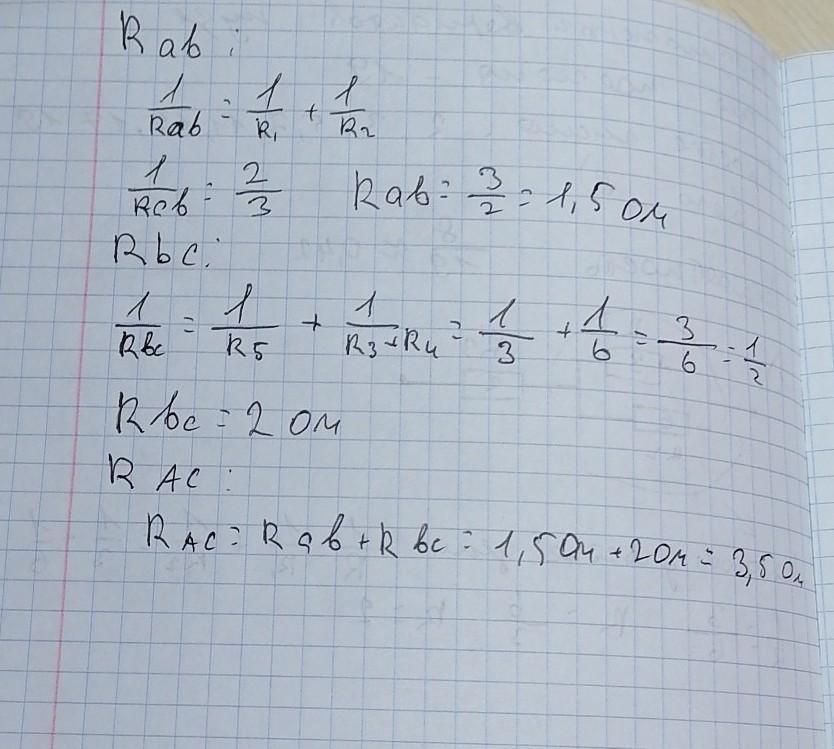 R ab:
1/Rab = 1/R₁ + 1/R₂
1/Rcb = 2/3 Rab = 3/2 = 1,5 Ом
Rbc:
1/Rbc = 1/R5 + 1/R3+R4 = 1/3 + 1/6 = 3/6 = 1/2
Rbc = 2 Ом
R AC:
R AC = Rab + Rbc = 1,5 Ом + 2 Ом = 3,5 Ом